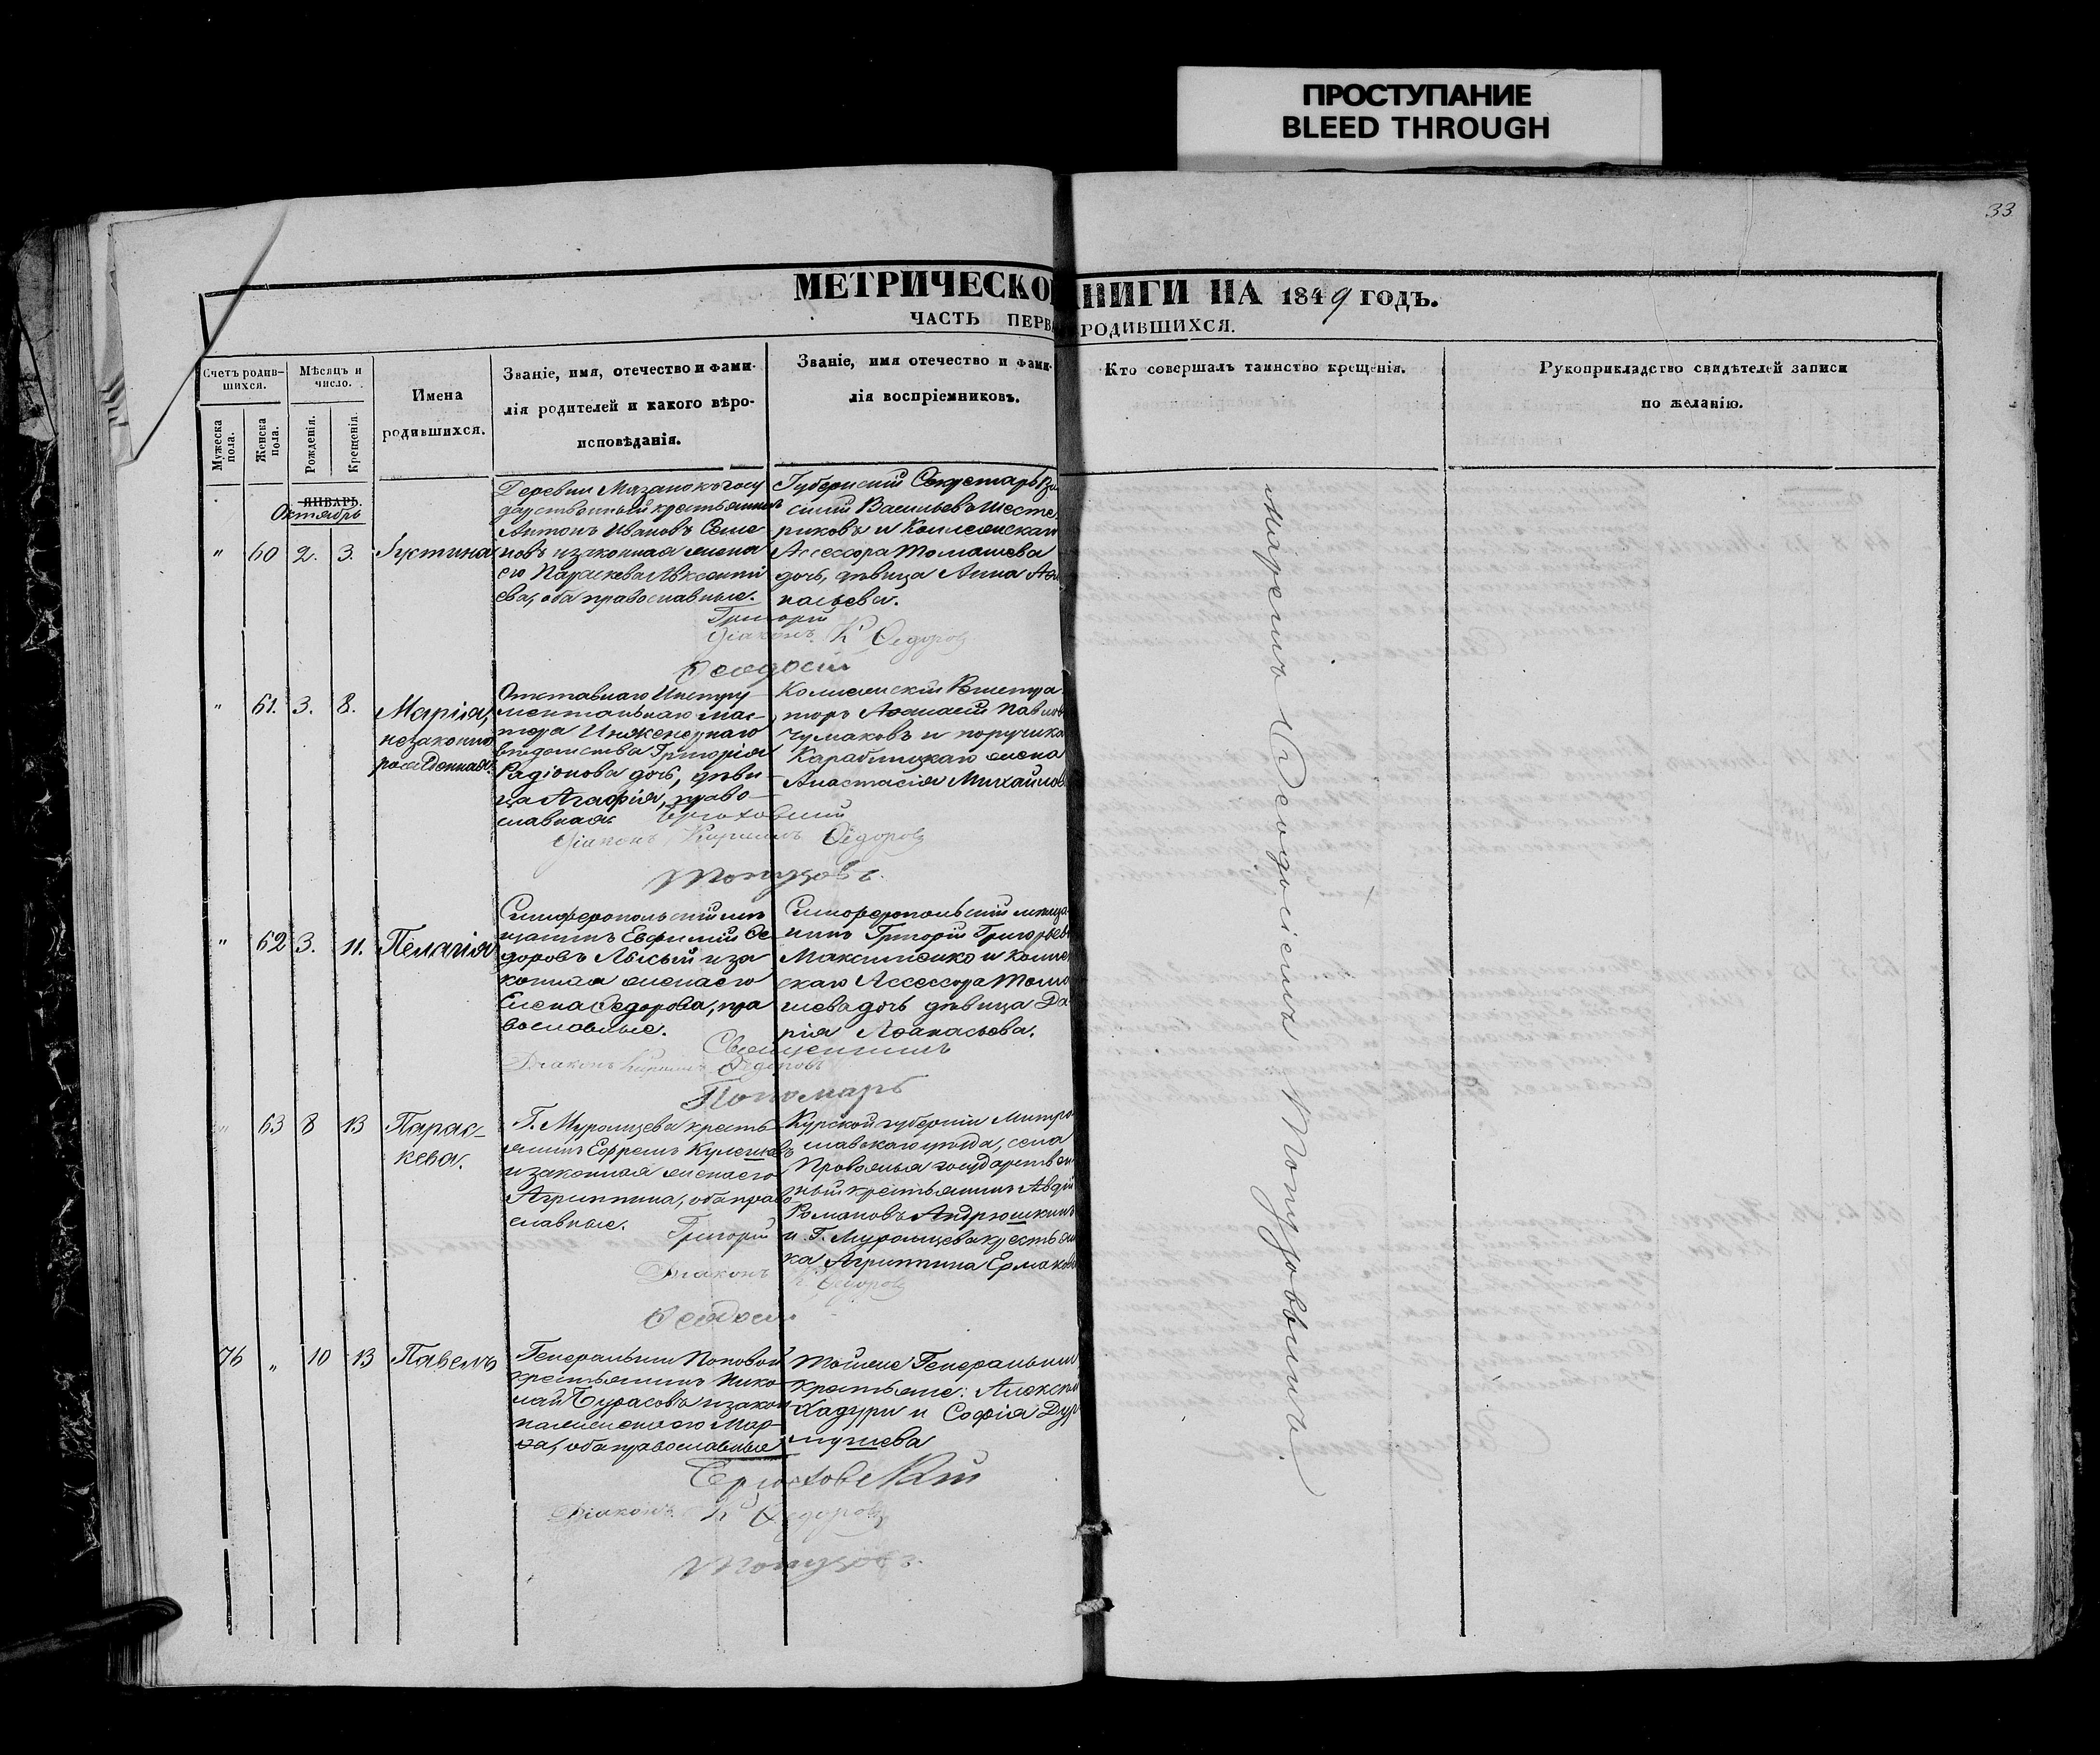 ПРОСТУПАНИЕ
BLEED THROUGH
33
МЕТРИЧЕСКО НИГИ НА 1849 ГОДЪ.
ЧАСТЬ ПЕРВ РОДИВШИХСЯ.
Счетъ родив-
шихся.
Мужеска пола.
Женска пола.
Мѣсяцъ и
число.
Рожденія.
Крещенія.
Имена
родившихся.
Званіе, имя, отечество и фами-
лія родителей и какого вѣро-
исповѣданія.
Званіе, имя отечество и фами-
лія воспріемниковъ.
Кто совершалъ таинство крещенія.
Рукоприкладство свидѣтелей записи
по желанію.
ЯНВАРЬ.
Октябрь
" 60 2. 3. Іустина
Деревни Мазанокъ госу
дарственный крестьянинъ
Антонъ Ивановъ Семе
новъ и законная жена
его Параскева Алексѣи
ева, оба православные.
Губернскій Секретарь Ва
силій Васильевъ Шесте
риковъ и Коллежскаго
Ассессора Томашева
дочь, дѣвица Анна Аѳа
насьева.
Григорій
Діаконъ К Ѳедоровъ
Ѳеодосій
" 61. 3. 8. Марія,
незаконно
рожденная.
Отставнаго Инстру
ментальнаго мас-
тера Инженернаго
вѣдомства Григорія
Радіонова дочь, дѣви
ца Агафія, право-
славная.
Коллежскій Регистра
торъ Аѳанасій Павлов
Чумаковъ и поручика
жена
Анастасія Михайлов
Діаконъ Кириллъ Ѳедоровъ
Топузовъ.
" 62 3. 11. Пелагія
Симферопольскій мѣ
щанинъ Евфимій Ѳе
доровъ Лысый и за
конная жена его
Елена Ѳедорова, пра
вославные.
Симферопольскій мѣща
нинъ Григорій Григорьев
Максименко и Колле
скаго Ассессора Тома
шева дочь дѣвица Да
рія Аѳанасьева.
Священникъ
Діаконъ Кириллъ Ѳедоровъ
Пономарь
" 63 8 13 Парас-
кева.
Г. Муромцева кресть
янинъ Ефремъ Кулешовъ
и законная жена его
Агриппина, оба право
славные.
Курской губерніи Митро
славскаго уѣзда, села
государствен
ный крестьянинъ Авдій
Романовъ Андрюшкинъ
и Г. Муромцева крестьян
ка Агриппина Ермаков
Григорій
Діаконъ К Ѳедоровъ
Ѳеодосій
76 " 10 13 Павелъ
Генеральши Поповой
крестьянинъ Нико
лай Бурасовъ и закон
ная жена его Мар-
ѳа, оба православные
Тойже Генеральши
крестьяне: Алексѣй
Хадури и Софія Дур
мушева
Діаконъ К Ѳедоровъ
Топузовъ.
Ѳеодосіемъ Топузовымъ.